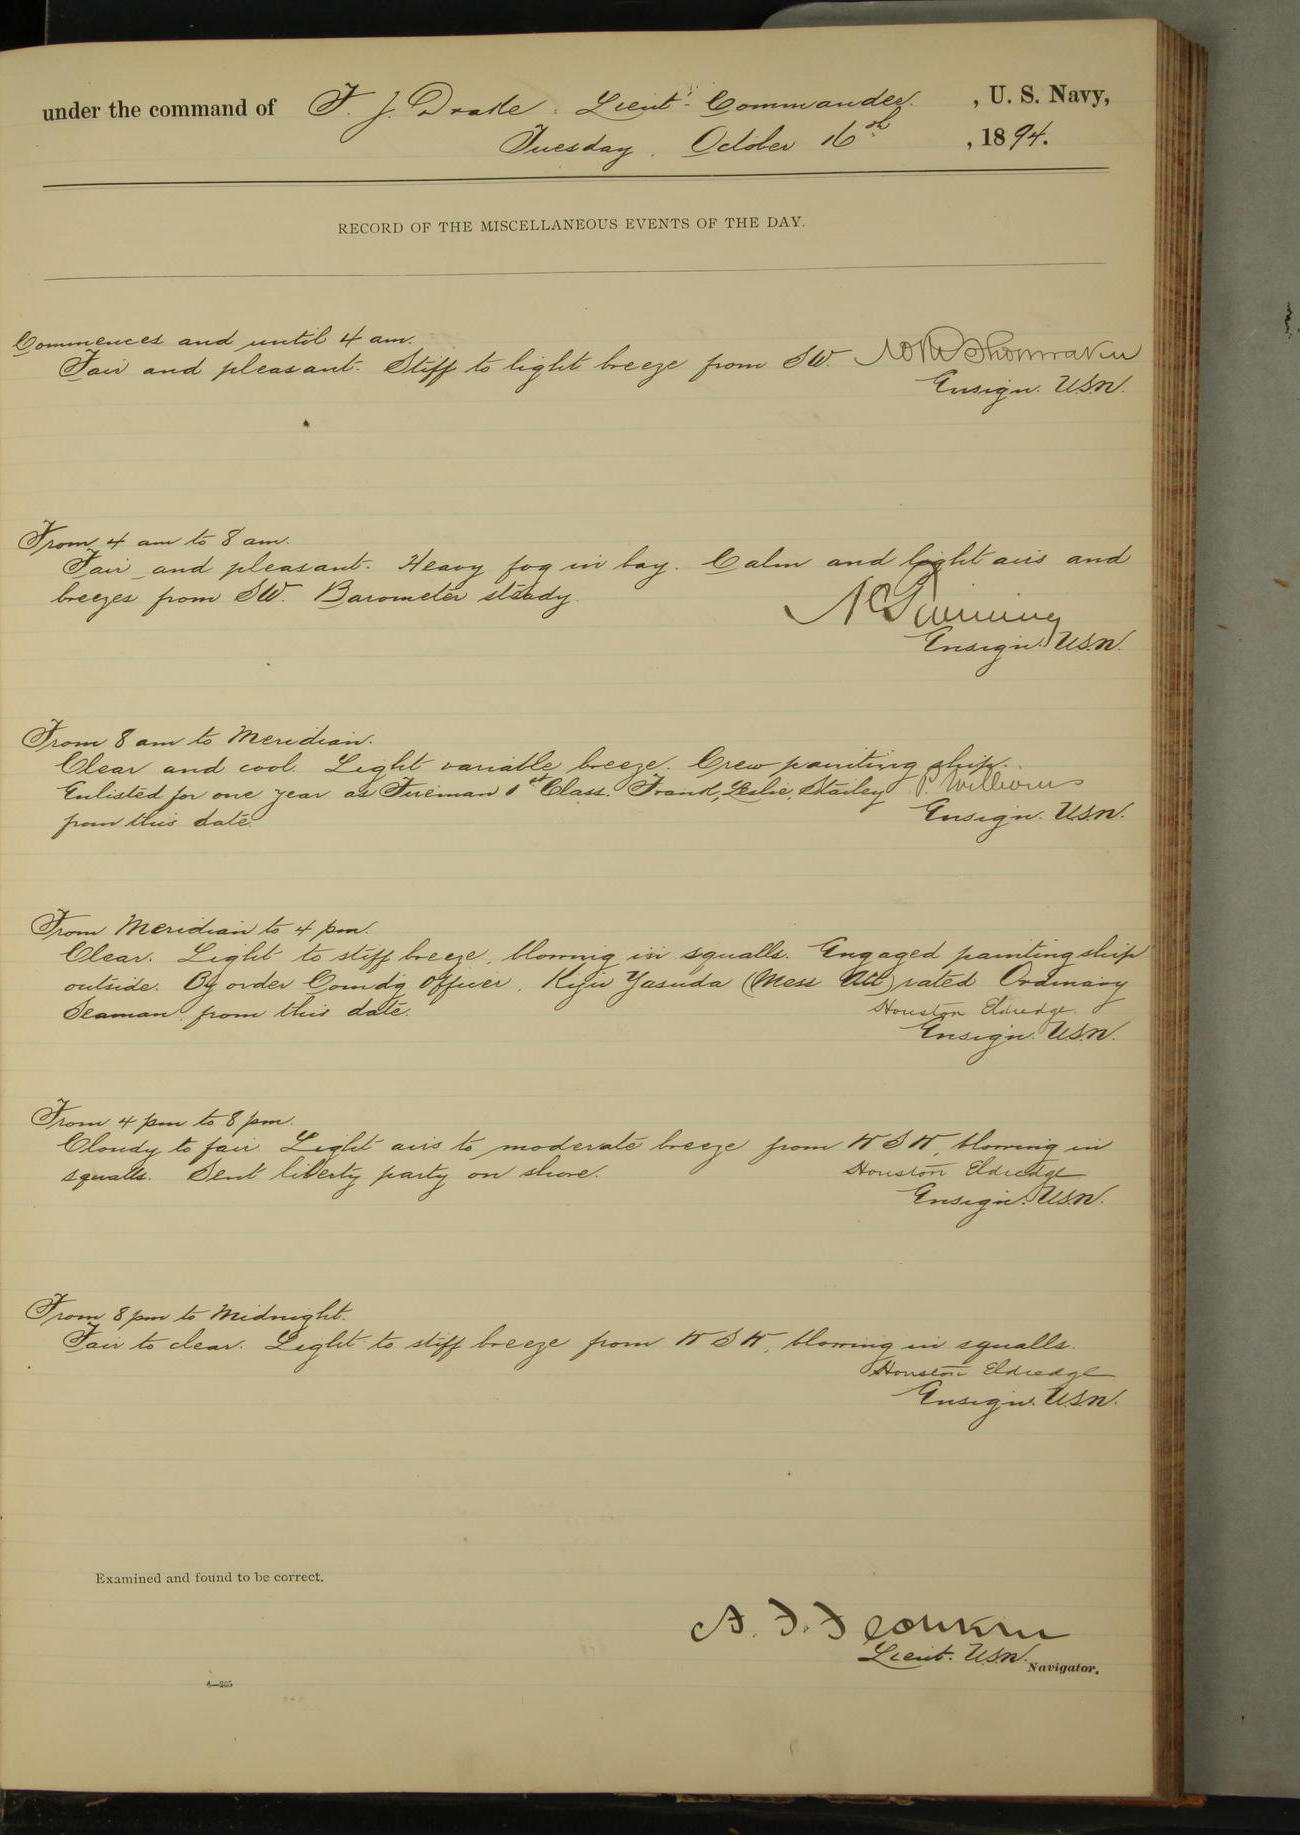 under the command of F. J. Drake. Lieut.-Commander. , U. S. Navy,
Tuesday. October 16th , 1894.
RECORD OF THE MISCELLANEOUS EVENTS OF THE DAY.
Commences and until 4 am.
Fair and pleasant. Stiff to light breeze from SW.
Ensign. U.S.N.
From 4 am to 8 am.
Fair and pleasant. Heavy fog in bay. Calm and light airs and
breezes from SW. Barometer steady.
Ensign. U.S.N.
From 8 am to Meridian.
Clear and cool. Light variable breeze. Crew painting ship.
Enlisted for one year as Fireman 1st Class. Frank, Leslie, Stailey P. Williams
from this date. Ensign. U.S.N.
From Meridian to 4 pm.
Clear. Light to stiff breeze, blowing in squalls. Engaged painting ship
outside. By order Comdg Officer, Yasuda (Mess Att) rated Ordinary
Seaman from this date. Houston Eldredge
Ensign. U.S.N.
From 4 pm to 8 pm.
Cloudy to fair. Light airs to moderate breeze from WSW, blowing in
squalls. Sent liberty party on shore. Houston Eldredge
Ensign. U.S.N.
From 8 pm to Midnight.
Fair to clear. Light to stiff breeze from WSW, blowing in squalls.
Houston Eldredge
Ensign. U.S.N.
Examined and found to be correct.
Lieut. U.S.N. Navigator.